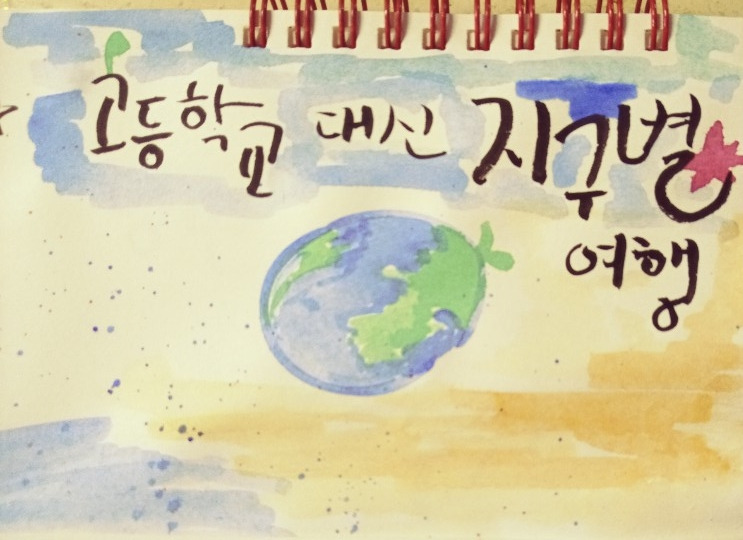 고등학교 대신 지구별
여행